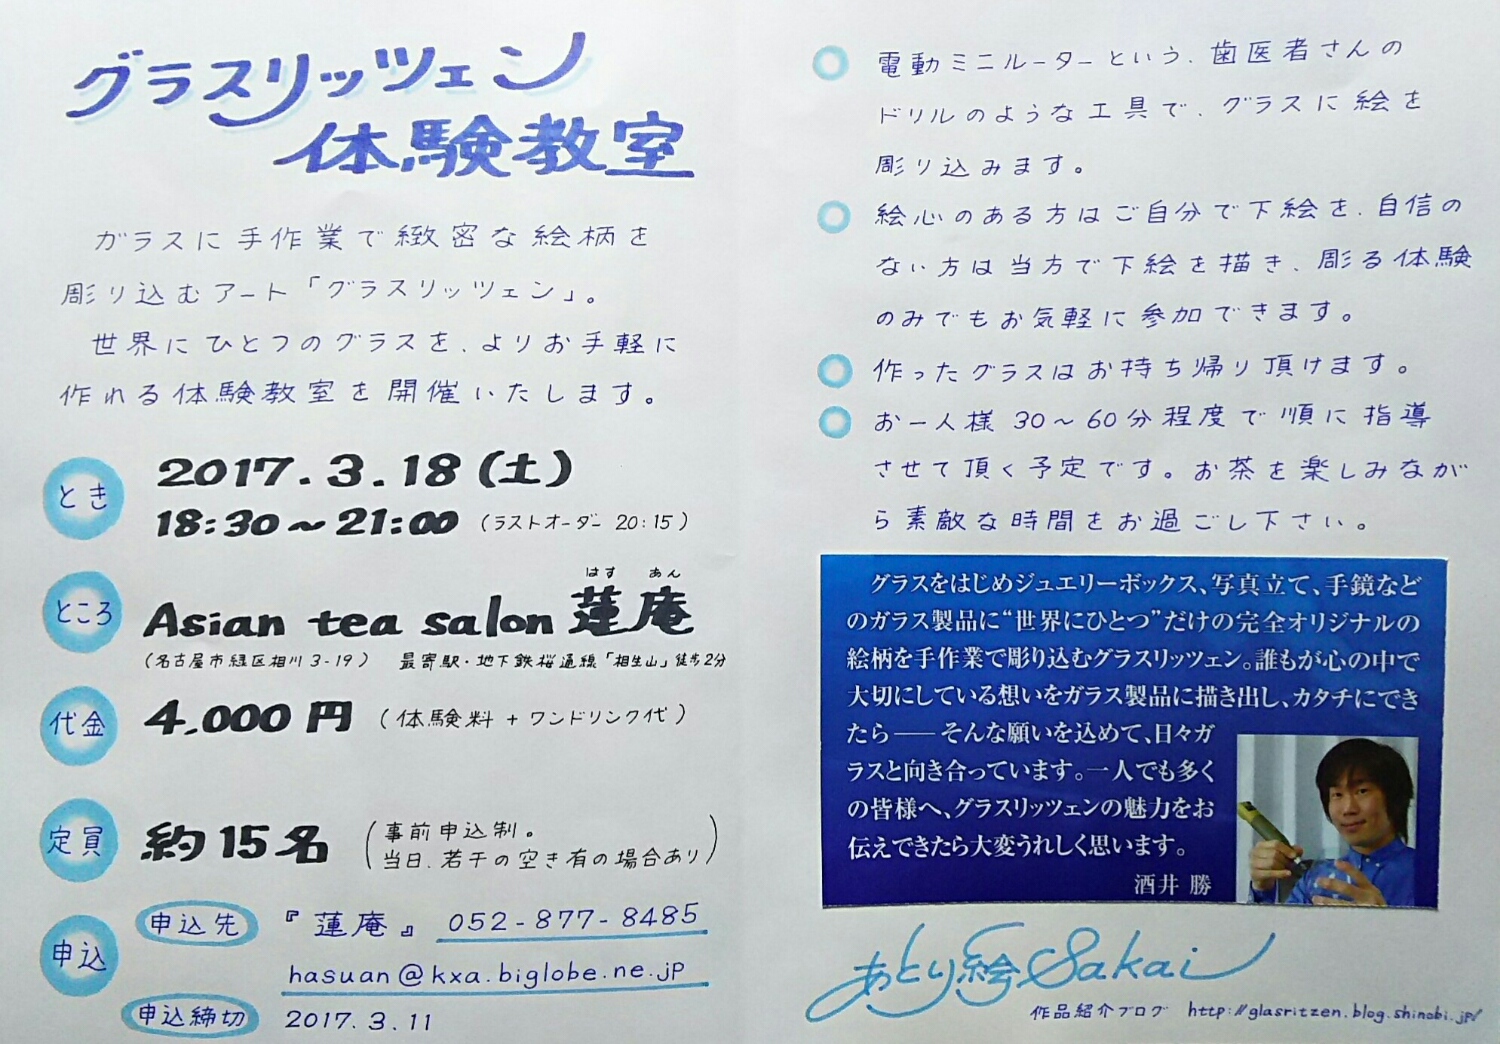 グラスリッツェン
体験教室
ガラスに手作業で緻密な絵柄を
彫り込むアート「グラスリッツェン」。
世界にひとつのグラスを、よりお手軽に
作れる体験教室を開催いたします。
とき
2017.3.18(土)
18:30～21:00 (ラストオーダー 20:15)
ところ
はす あん
Asian tea salon 蓮庵
(名古屋市緑区相川3-19) 最寄駅・地下鉄桜通線「相生山」徒歩2分
代金
4,000円 (体験料+ワンドリンク代)
定員
約15名 (事前申込制。
当日、若干の空き有の場合あり)
申込
申込先 『蓮庵』 052-877-8485
hasuan@kxa.biglobe.ne.jp
申込締切 2017.3.11
電動ミニルーターという、歯医者さんの
ドリルのような工具で、グラスに絵を
彫り込みます。
絵心のある方はご自分で下絵を、自信の
ない方は当方で下絵を描き、彫る体験
のみでもお気軽に参加できます。
作ったグラスはお持ち帰り頂けます。
お一人様30～60分程度で順に指導
させて頂く予定です。お茶を楽しみなが
ら素敵な時間をお過ごし下さい。
グラスをはじめジュエリーボックス、写真立て、手鏡など
のガラス製品に“世界にひとつ”だけの完全オリジナルの
絵柄を手作業で彫り込むグラスリッツェン。誰もが心の中で
大切にしている想いをガラス製品に描き出し、カタチにでき
たら――そんな願いを込めて、日々ガ
ラスと向き合っています。一人でも多く
の皆様へ、グラスリッツェンの魅力をお
伝えできたら大変うれしく思います。
酒井 勝
あとり絵Sakai
作品紹介ブログ http://glasritzen.blog.shinobi.jp/